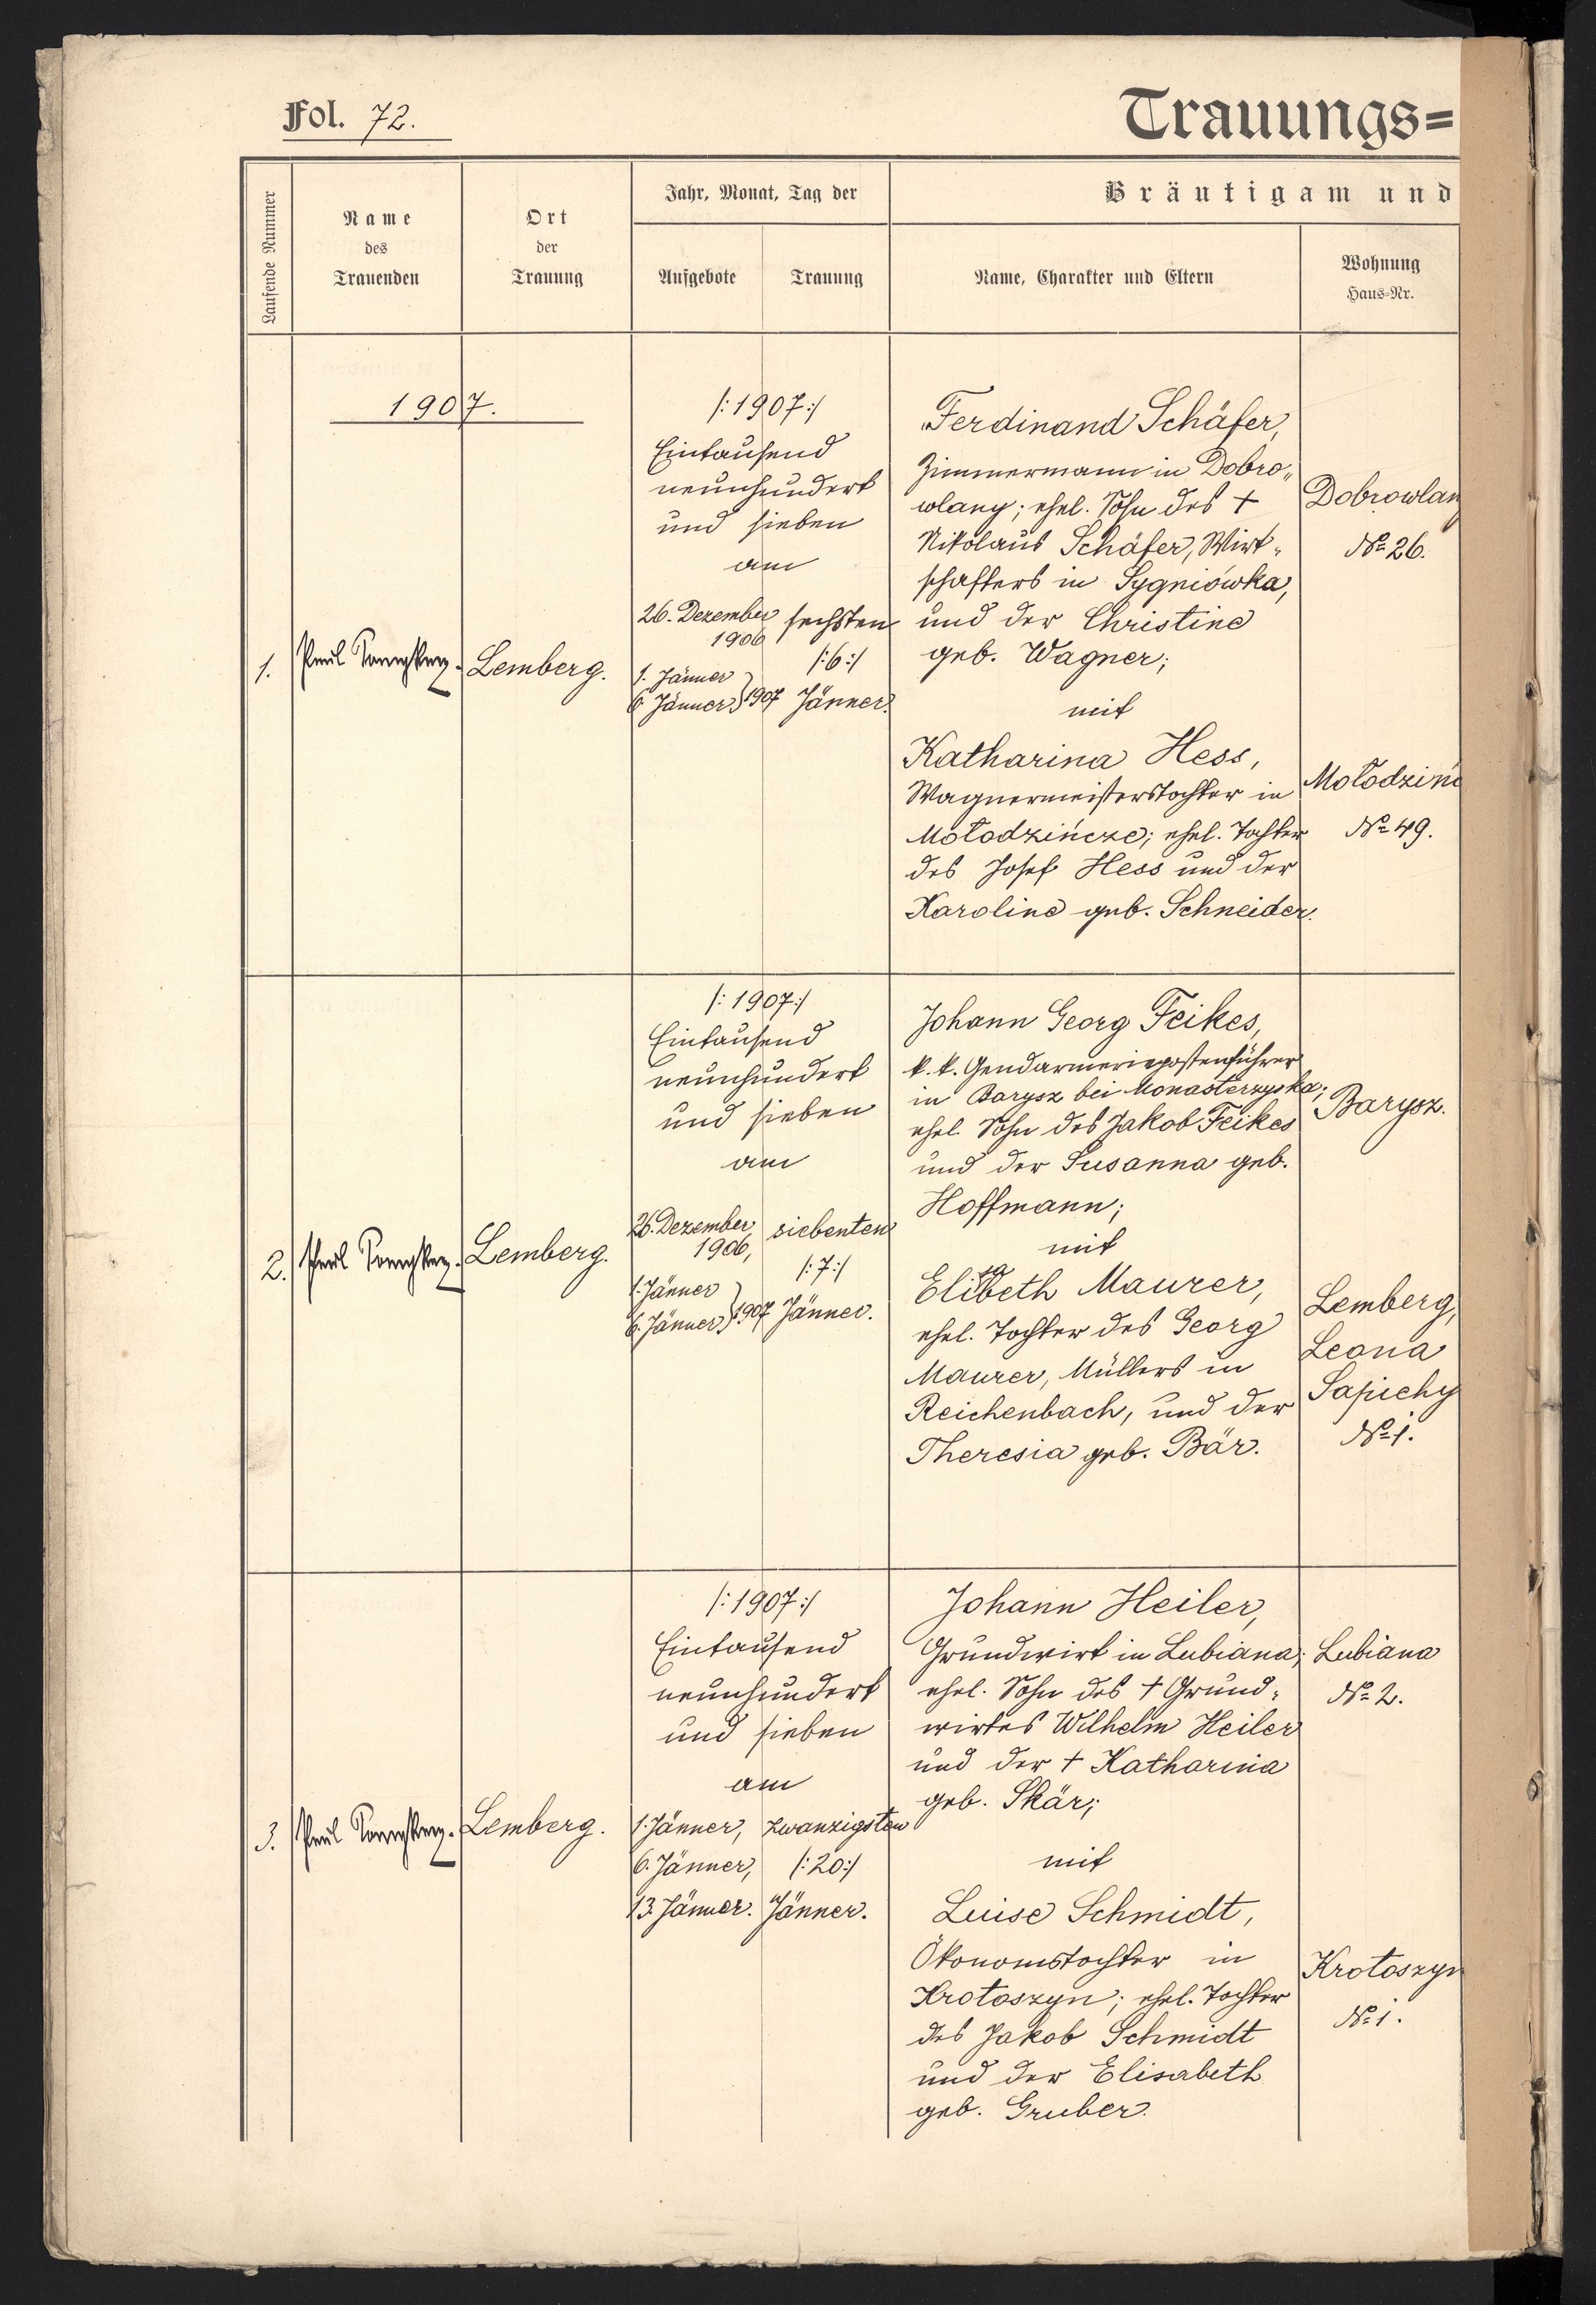 Fol. 72.
Trauungs=
Laufende Nummer
Name
des
Trauenden
Ort
der
Trauung
Jahr, Monat, Tag der
Aufgebote
Trauung
Bräutigam und
Name, Charakter und Eltern
Wohnung
Haus=Nr.
1907.
1.
Paul
Lemberg.
/:1907:/
Eintausend
neunhundert
und sieben
am
26. Dezember
1906
1. Jänner
6. Jänner } 1907
sechsten
/:6:/
Jänner.
Ferdinand Schäfer,
Zimmermann in Dobro„
wlany; ehel. Sohn des †
Nikolaus Schäfer, Wirt„
schafters in Sygniówka,
und der Christine
geb. Wagner;
mit
Katharina Hess,
Wagnermeisterstochter in
Mołodzińcze; ehel. Tochter
des Josef Hess und der
Karoline geb. Schneider.
Dobrowlan
№ 26.
Mołodzińc
№ 49.
2.
Paul
Lemberg.
/:1907:/
Eintausend
neunhundert
und sieben
am
26. Dezember
1906,
1. Jänner
6. Jänner } 1907
siebenten
/:7:/
Jänner.
Johann Georg Feikes,
k. k. Gendarmeriepostenführer
in Barysz bei Monasterzyska;
ehel. Sohn des Jakob Feikes
und der Susanna geb.
Hoffmann;
mit
sa
Elibeth Maurer,
ehel. Tochter des Georg
Maurer, Müllers in
Reichenbach, und der
Theresia geb. Bär.
Barysz.
Lemberg,
Leona
Sapiehy
№ 1.
3.
Paul
Lemberg.
/:1907:/
Eintausend
neunhundert
und sieben
am
1. Jänner,
6. Jänner,
13. Jänner.
zwanzigsten
/:20:/
Jänner.
Johann Heiler,
Grundwirt in Lubiana;
ehel. Sohn des † Grund„
wirtes Wilhelm Heiler
und der † Katharina
geb. Skär;
mit
Luise Schmidt,
Ökonomstochter in
Krotoszyn; ehel. Tochter
des Jakob Schmidt
und der Elisabeth
geb. Gruber.
Lubiana
№ 2.
Krotoszyn
№ 1.